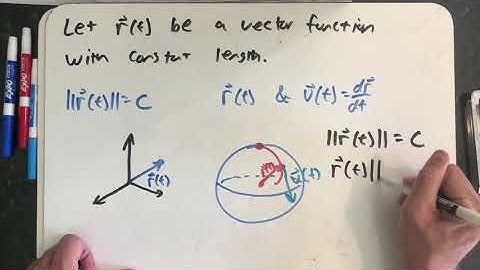 Let r⃗(t) be a vector function
with constant length.
||r⃗(t)|| = C
r⃗(t) & v⃗(t) = dr⃗/dt
||r⃗(t)|| = C
r⃗(t)||
r⃗(t)
r⃗(t)
v⃗(t)
EXPO
EXPO